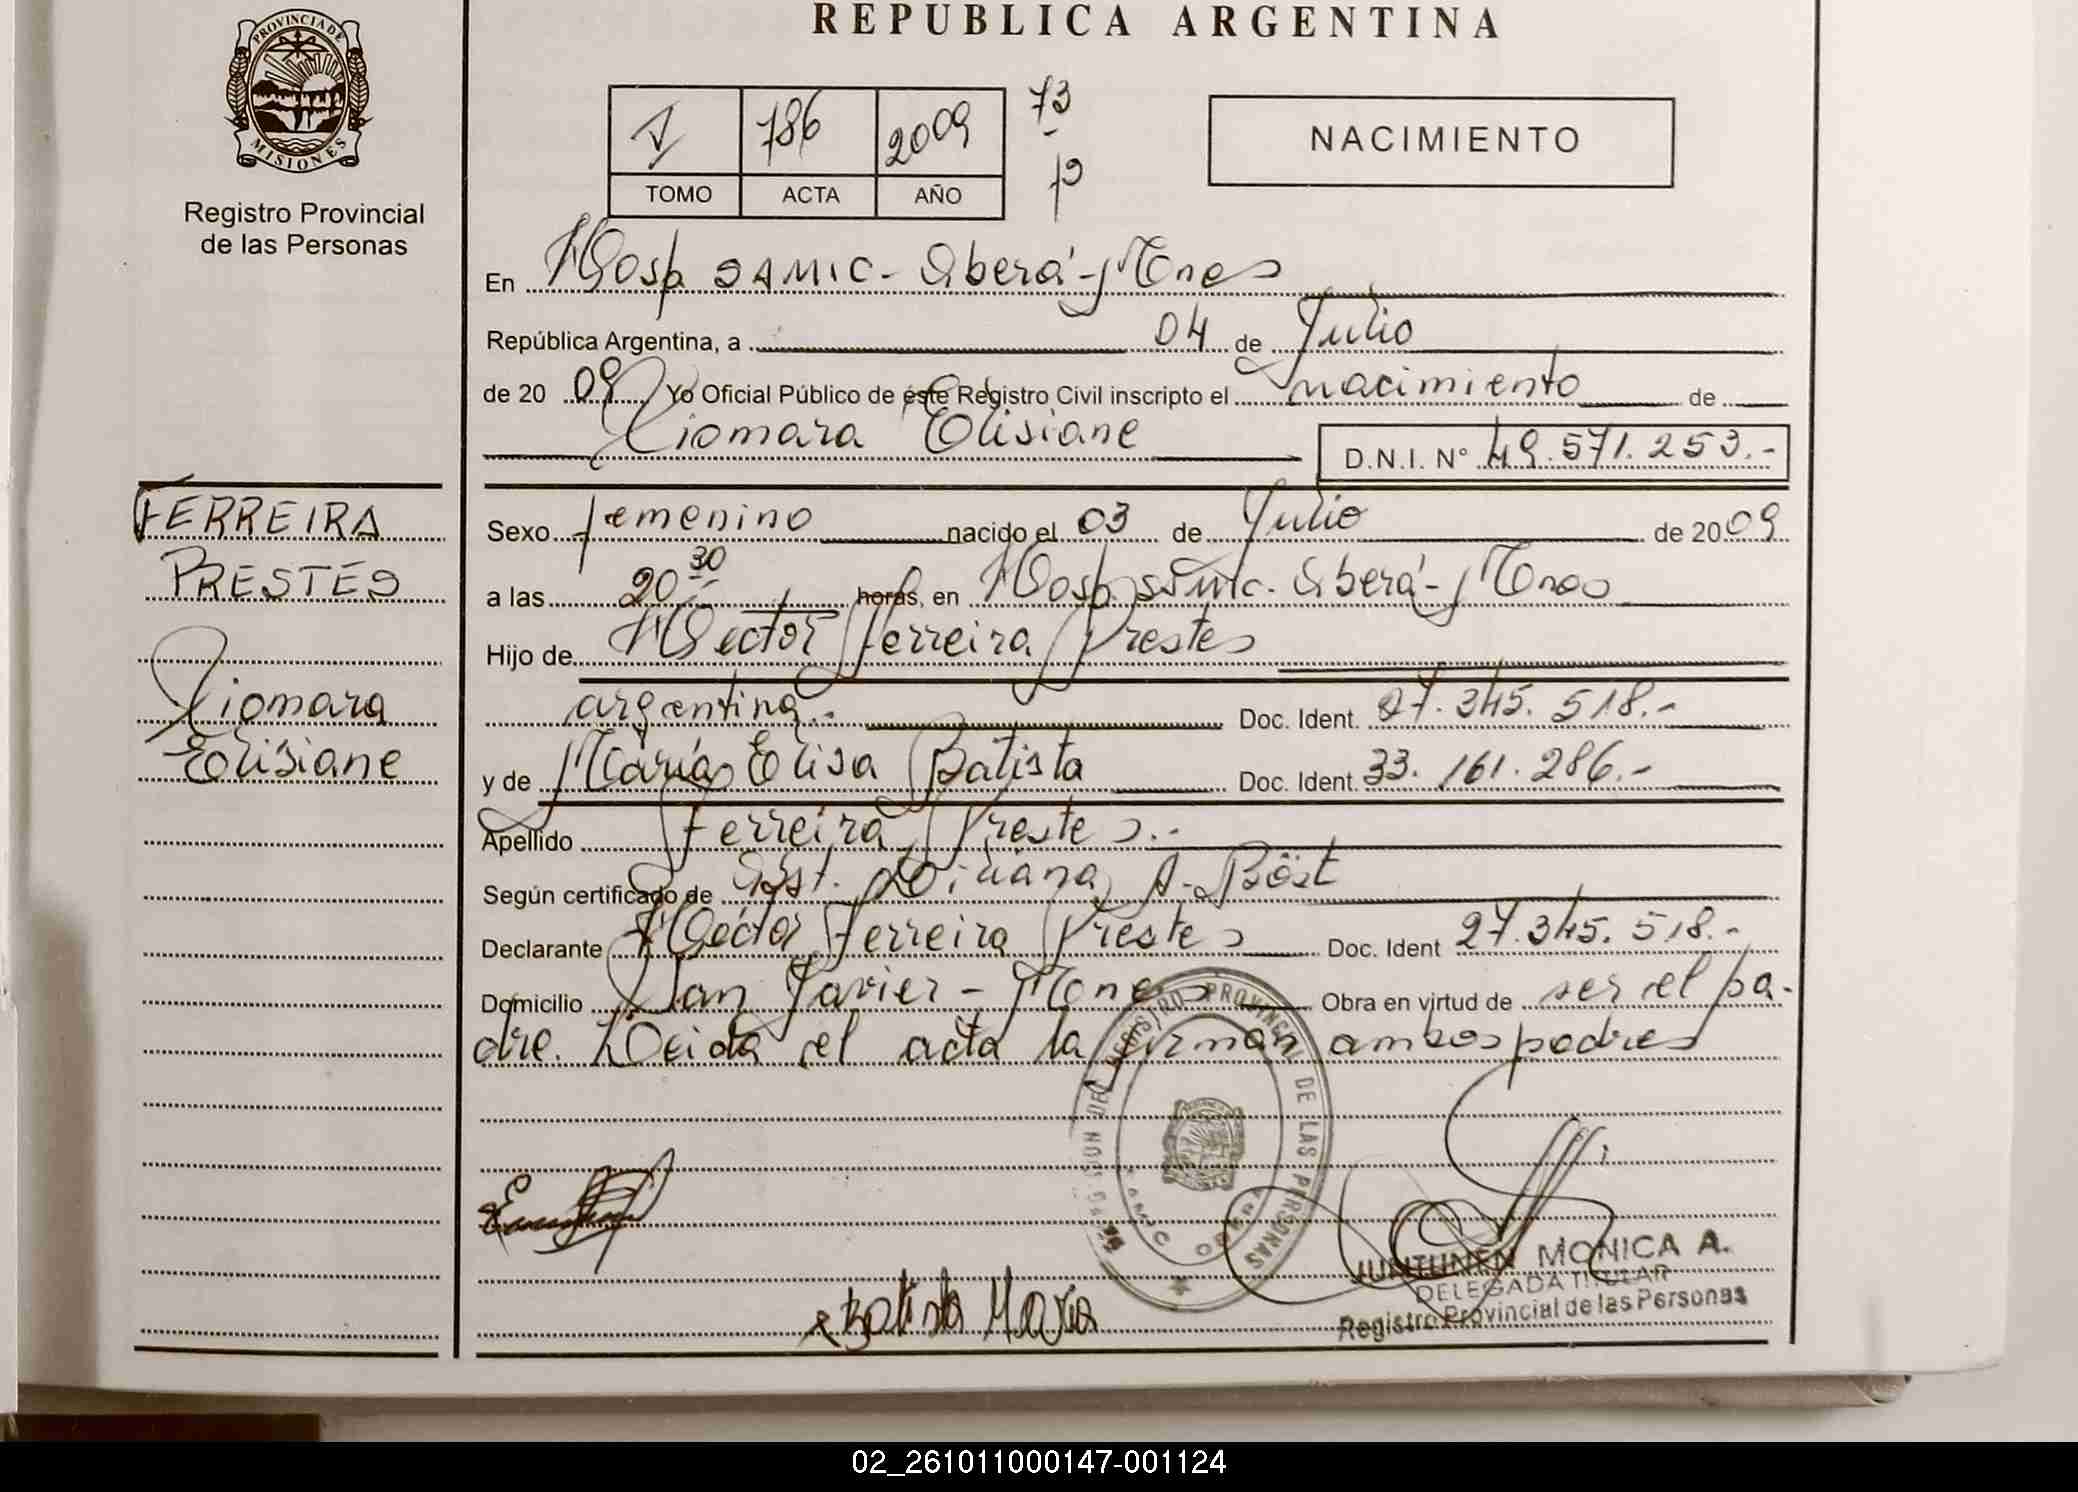 REPUBLICA ARGENTINA
PROVINCIA DE
MISIONES
Registro Provincial
de las Personas
I 786 2009
TOMO ACTA AÑO
73
NACIMIENTO
En Hosp SAMIC - Oberá - Mnes
República Argentina, a 04 de Julio
de 20 09 Yo Oficial Público de éste Registro Civil inscripto el nacimiento de
Xiomara Elisiane D.N.I. Nº 49.571.253.-
FERREIRA
PRESTES
Xiomara
Elisiane
Sexo femenino nacido el 03 de Julio de 2009
a las 20 30 horas, en Hosp. SAMIC - Oberá - Mnes
Hijo de Hector Ferreira Prestes
argentina.- Doc. Ident. 27.345.518.-
y de María Elisa Batista Doc. Ident. 33.161.286.-
Apellido Ferreira Prestes.-
Según certificado de Obst. Liliana A. Böst
Declarante Hector Ferreira Prestes Doc. Ident 27.345.518.-
Domicilio San Javier - Mnes Obra en virtud de ser el pa-
dre. Leida el acta la firman ambos padres
REGISTRO PROVINCIAL DE LAS PERSONAS
Batista Maria
JUNTUNEN MONICA A.
DELEGADA TITULAR
Registro Provincial de las Personas
02_261011000147-001124